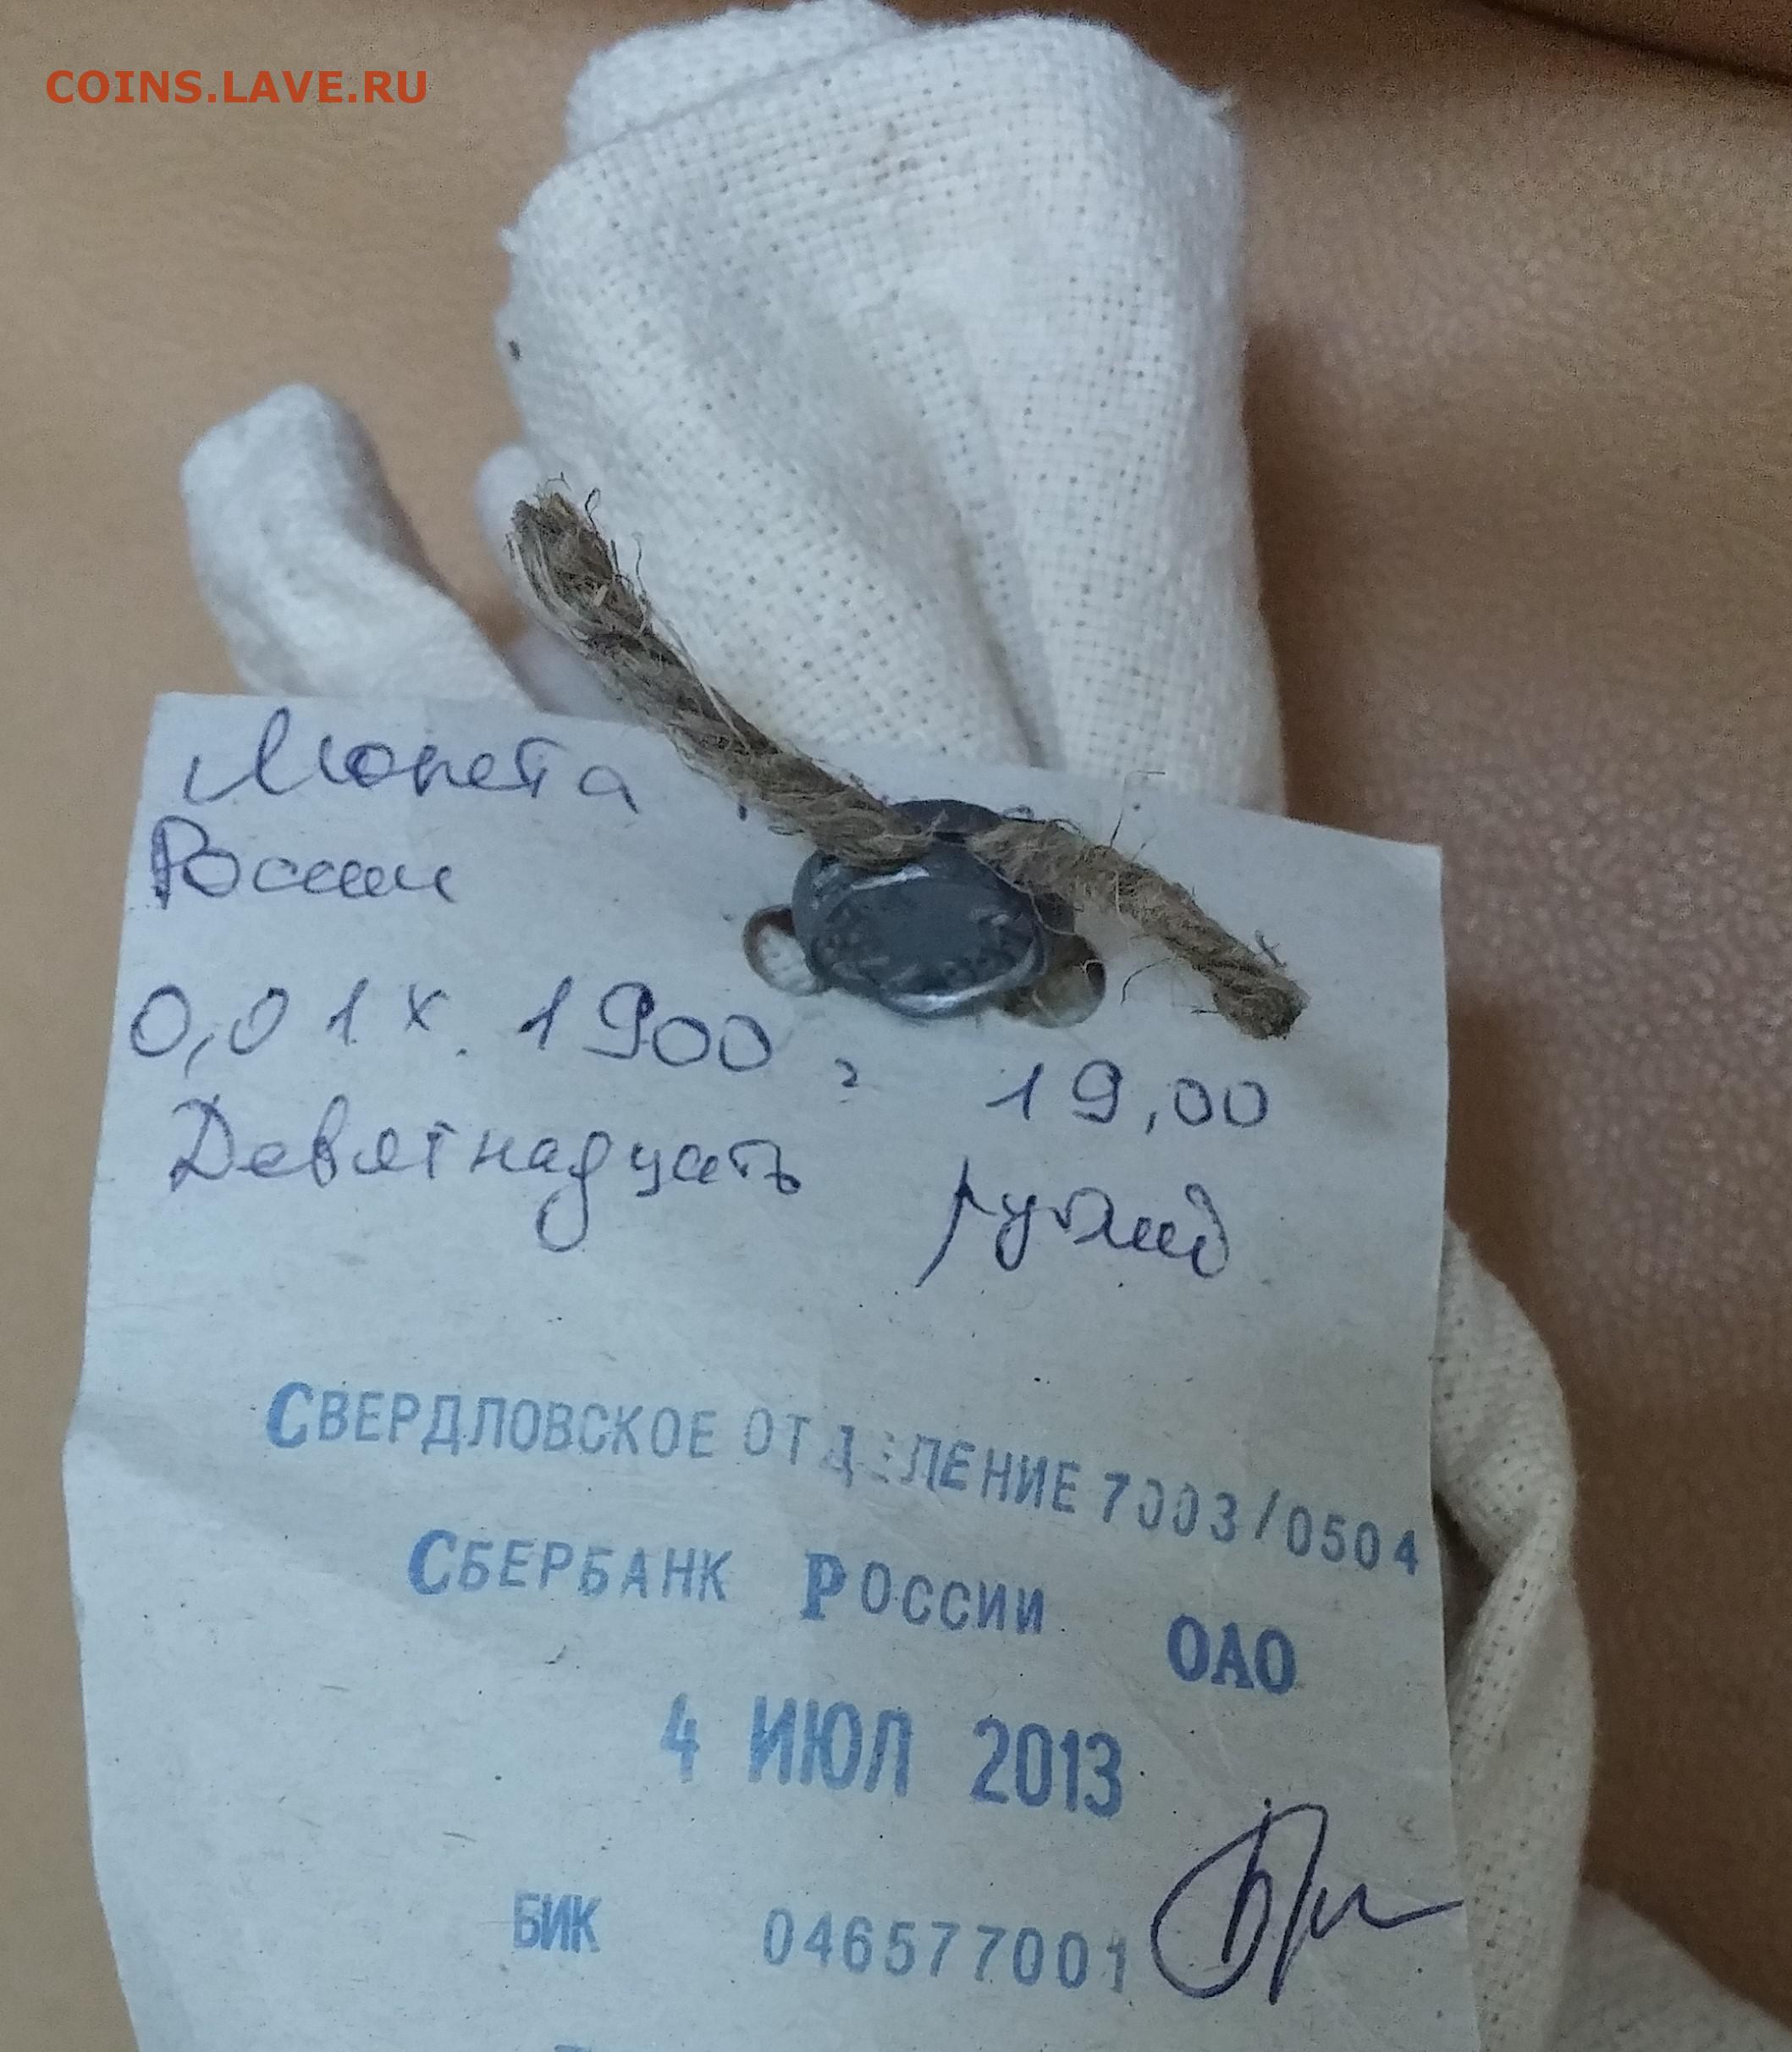 COINS.LAVE.RU
Монета
России
0,01 х 1900 = 19,00
Девятнадцать рублей
СВЕРДЛОВСКОЕ ОТДЕЛЕНИЕ 7003/0504
СБЕРБАНК РОССИИ ОАО
4 ИЮЛ 2013
БИК 046577001